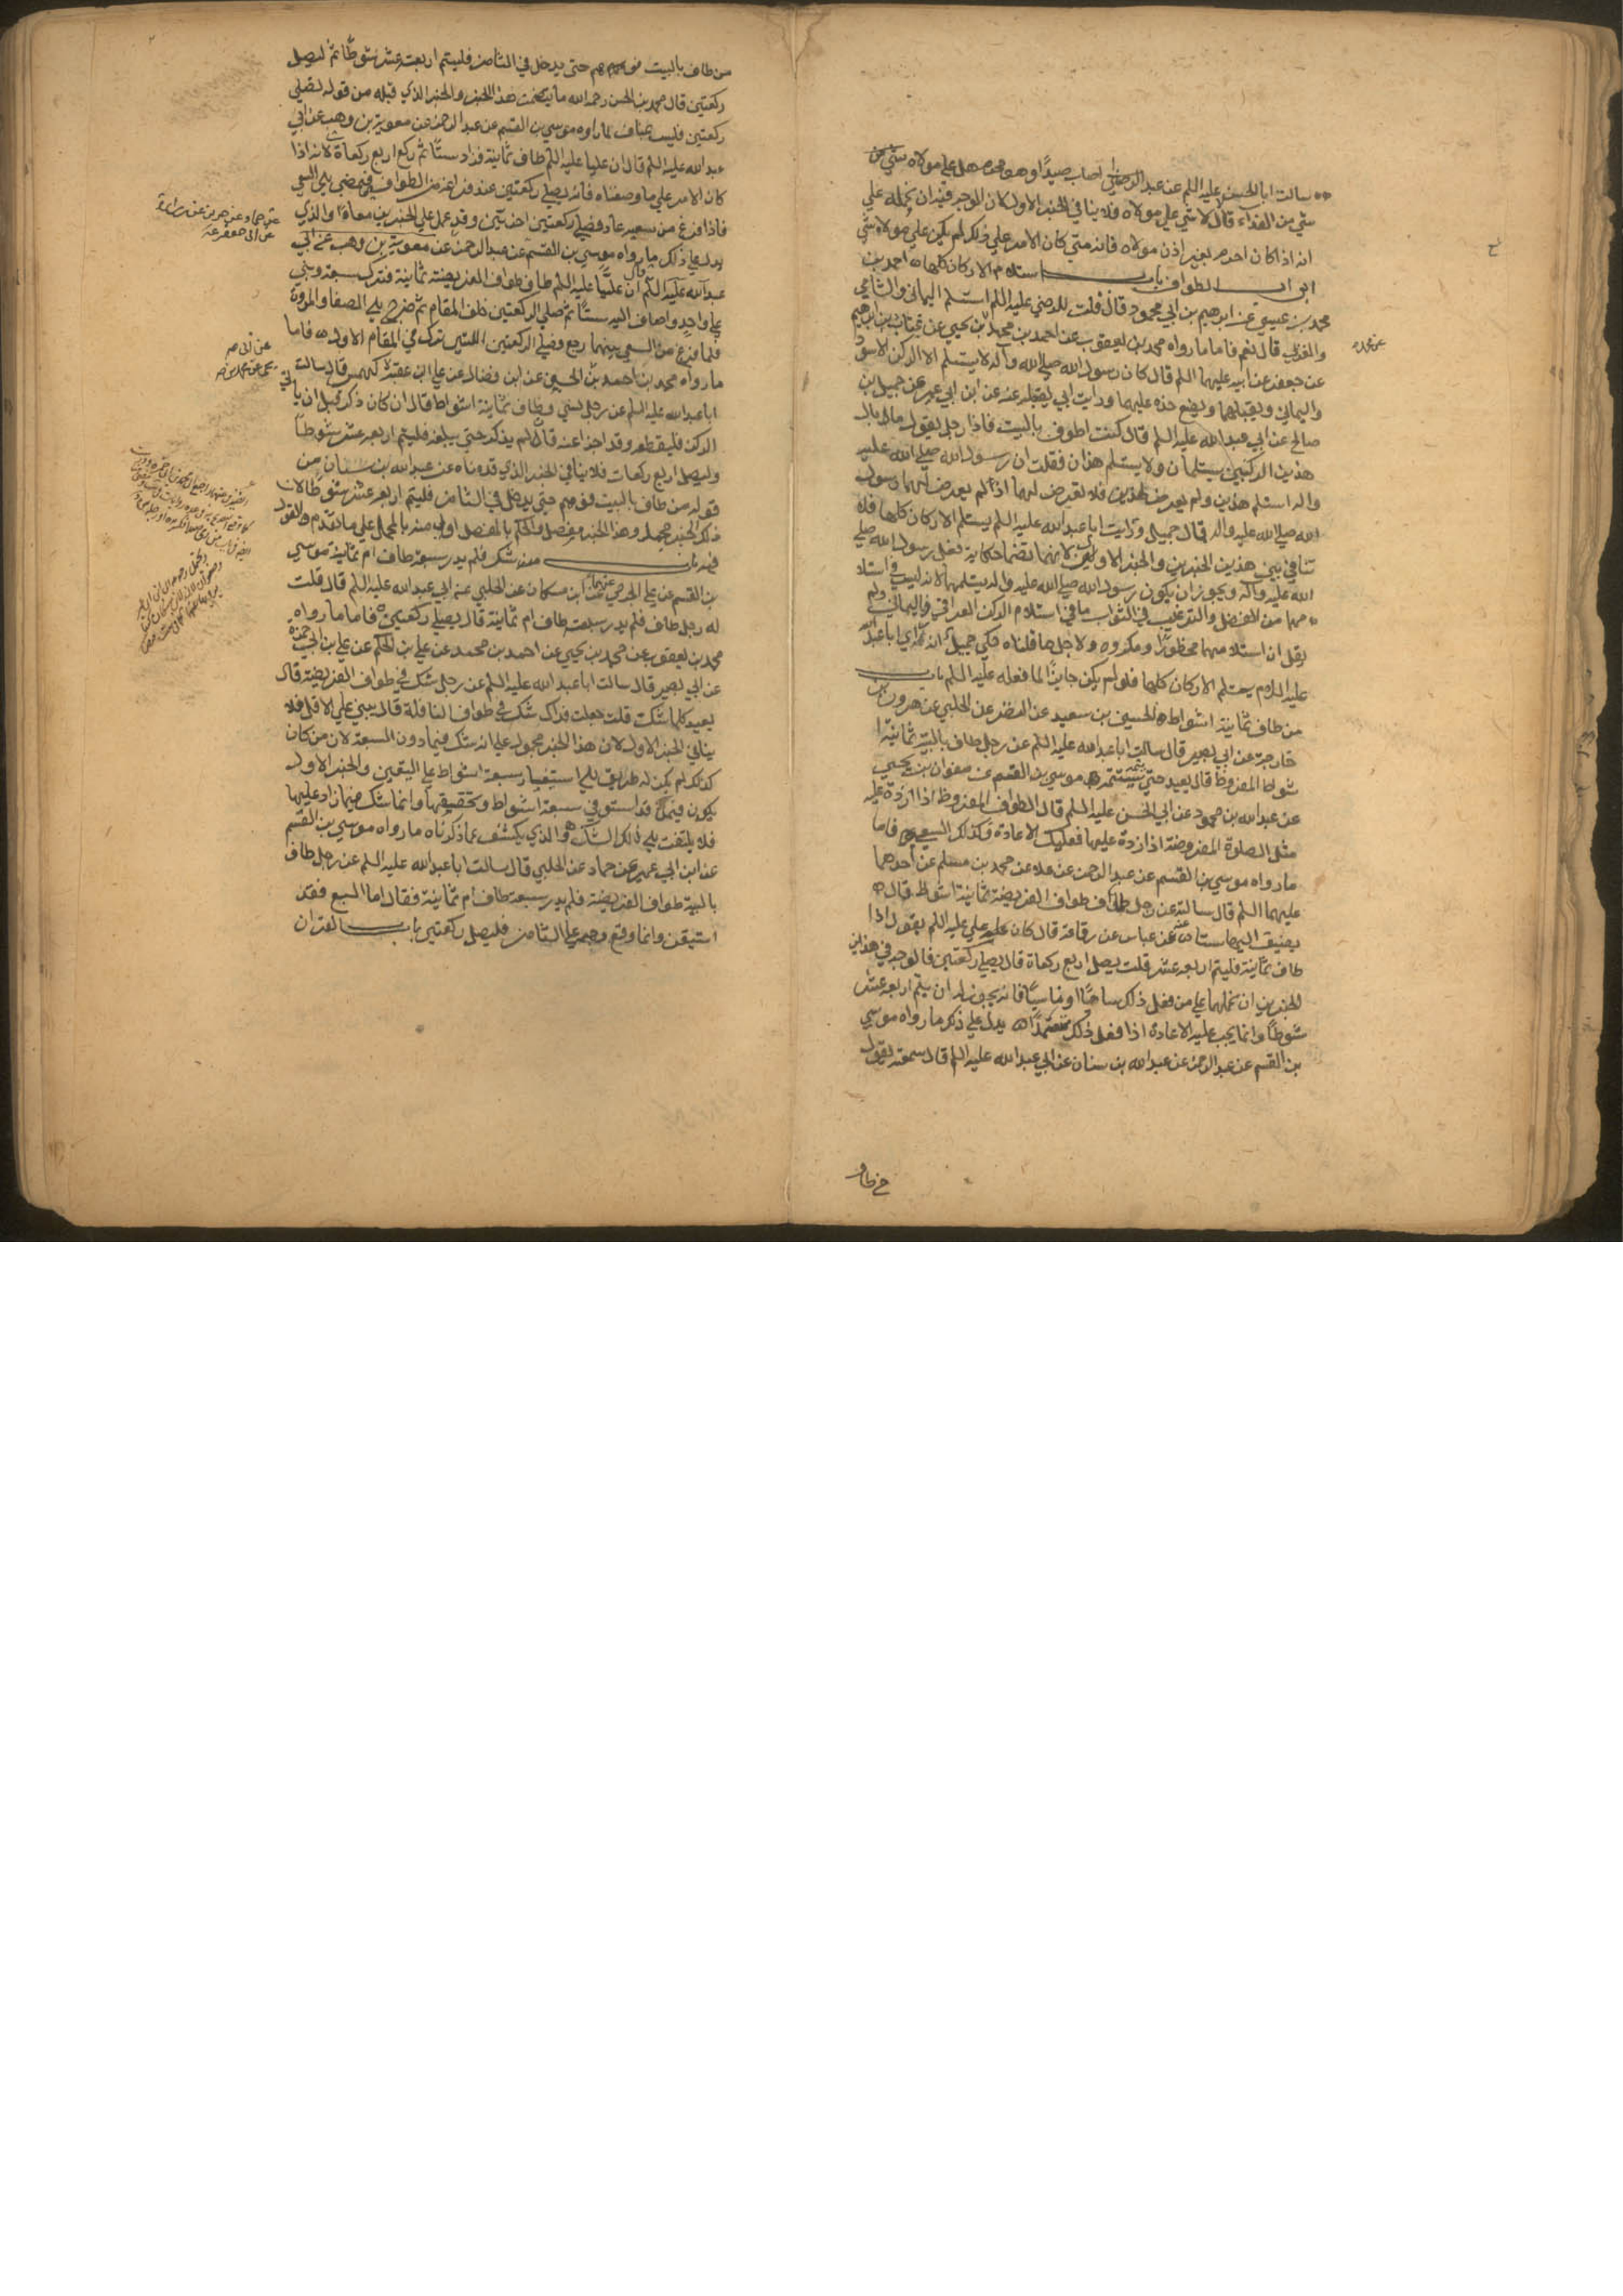 سالت ابا الحسن عليه السلم عن عبد اصاب صيدًا وهو محرم هل علي مولاه شي من
شي من الفداء قال لا شي علي مولاه فلا ينافي الخبر الاول لان الوجه فيه ان نحمله علي
انه اذا كان احرم بغير اذن مولاه فانه متي كان الامر علي ذلك لم يكن علي مولاه شي
ابواب الطواف باب استلام الاركان كلها احمد بن
محمد بن عيسي عن ابرهيم بن ابي محمود قال قلت للرضي عليه السلم استلم اليماني والشامي
والغربي قال نعم فاما ما رواه محمد بن يعقوب عن احمد بن محمد بن يحيي عن غياث بن ابرهيم
عن جعفر عن ابيه عليهما السلم قال كان رسول الله صلي الله وآله لا يستلم الا الركن الاسود
واليماني ويقبلهما ويضع خده عليهما ورايت ابي يفعله عنه عن ابن ابي عمير عن جميل بن
صالح عن ابي عبد الله عليه السلم قال كنت اطوف بالبيت فاذا رجل يقول ما بال
هذين الركنين يستلمان ولا يستلم هذان فقلت ان رسول الله صلي الله عليه
واله استلم هذين ولم يعرض لهذين فلا تعرض لهما اذا لم يعرض لهما رسول
الله صلي الله عليه واله قال جميل ورايت ابا عبد الله عليه السلم يستلم الاركان كلها فلا
تنافي بين هذين الخبرين والخبر الاول لانهما تضمنا حكاية فعل رسول الله صلي
الله عليه وآله ويجوز ان يكون رسول الله صلي الله عليه واله لم يستلمهما لانه ليس في استلا
مهما من الفضل والترغيب في الثواب ما في استلام الركن العراقي واليماني ولم
يقل ان استلامهما محظور او مكروه ولاجل ما قلناه حكي جميل انه راي ابا عبد الله
عليه السلام يستلم الاركان كلها فلو لم يكن جايزًا لما فعله عليه السلم باب
من طاف ثمانية اشواط الحسين بن سعيد عن النضر عن الحلبي عن هرون بن
خارجة عن ابي بصير قال سالت ابا عبد الله عليه السلم عن رجل طاف بالبيت ثمانية ا
شواط المفروض قال يعيد حتي يستتمه موسي بن القسم عن صفوان بن يحيي
عن عبد الله بن محمود عن ابي الحسن عليه السلم قال الطواف المفروض اذا ازدة عليه
مثل الصلوة المفروضة اذا زدة عليها فعليك الاعادة وكذلك السعي فاما
ما رواه موسي بن القسم عن عبد الرحمن عن علا عن محمد بن مسلم عن احدهما
عليهما السلم قال سالته عن رجل طاف طواف الفريضة ثمانية اشواط قال
يضيف اليها ستا عنه عن عباس عن رفاعة قال كان علي عليه السلم يقول اذا
طاف ثمانية فليتم اربعه عشر قلت يصلي اربع ركعاة قال يصلي ركعتين فالوجه في هذين
الخبرين ان نحملهما علي من فعل ذلك ساهيًا او ناسيًا فانه يجوز له ان يتم اربعه عشر
شوطًا وانما يجب عليه الاعادة اذا فعل ذلك متعمدًا يدل علي ذكر ما رواه موسي
بن القسم عن عبد الرحمن عن عبد الله بن سنان عن ابي عبد الله عليه السلم قال سمعته يقول
من طاف بالبيت فوهم حتى يدخل في الثامن فليتم اربعة عشر شوطًا ثم ليصل
ركعتين قال محمد بن الحسن رحمه الله ما تضمن هذا الخبر والخبر الذي قبله من قوله يصلي
ركعتين فليس بمناف لما رواه موسي بن القسم عن عبد الرحمن عن معوية بن وهب عن ابي
عبد الله عليه السلم قال ان عليا عليه السلم طاف ثمانية فزاد ستًا ثم ركع اربع ركعاة لانه اذا
كان الامر علي ما وصفناه فانه يصلي ركعتين عند فراغه من الطواف ويمضي الي السعي
فاذا فرغ من سعيه عاد فصلي ركعتين اخريين وقد عمل علي الخبرين معاة والذي
يدل علي ذلك ما رواه موسي بن القسم عن عبد الرحمن عن معوية بن وهب عن ابي
عبد الله عليه السلم قال ان عليًا عليه السلم طاف طواف الفريضة ثمانية فترك سبعة وبني
علي واحد واضاف اليه ستًا ثم صلي الركعتين خلف المقام ثم خرج الي الصفا والمروة
فلما فرغ من السعي بينهما رجع فصلي الركعتين اللتين ترك في المقام الاول فاما
ما رواه محمد بن احمد بن الحسين عن ابن فضال عن علي ابن عقبة كهمس قال سالت
ابا عبد الله عليه السلم عن رجل نسي وطاف ثمانية اشواط قال ان كان ذكر قبل ان ياتي
الركن فليقطعه وقد اجزا عنه قال لم يذكر حتي يبلغه فليتم اربعه عشر شوطاً
وليصل اربع ركعات فلا ينافي الخبر الذي قدمناه عن عبد الله بن سنان من
قوله من طاف بالبيت فوهم حتي يدخل في الثامن فليتم اربعه عشر شوطًا لان
ذكر الخبر مجمل وهذا الخبر مفصل والحكم بالمفصل اولي منه بالمجمل علي ما تقدم والقول
فيه باب من شك فلم يدر سبعة طاف ام ثمانية موسي
بن القسم عن علي الجرمي عنهما ابن مسكان عن الحلبي عن ابي عبد الله عليه السلم قال قلت
له رجل طاف فلم يدر سبعة طاف ام ثمانية قال يصلي ركعتين فاما ما رواه
محمد بن يعقوب عن محمد بن يحيي عن احمد بن محمد عن علي بن الحكم عن علي بن ابي حمزة
عن ابي بصير قال سالت ابا عبد الله عليه السلم عن رجل شك في طواف الفريضة قال
يعيد كلما شك قلت جعلت فداك شك في طواف النافلة قال يبني علي الاقل فلا
ينافي الخبر الاول لان هذا الخبر محمول علي انه شك فيما دون السبعة لان من كان
كذلك لم يكن له طريق الي استيفا سبعة اشواط علي اليقين والخبر الاول
يكون فيمن قد استوفي سبعة اشواط وتحقيقها وانما شك فيما زاد عليها
فلا يلتفت الي ذلك الشك والذي يكشف عما ذكرناه ما رواه موسي بن القسم
عن ابن ابي عمير عن حماد عن الحلبي قال سالت ابا عبد الله عليه السلم عن رجل طاف
بالبيت طواف الفريضة فلم يدر سبعة طاف ام ثمانية فقال اما السبع فقد
استيقن وانما وقع وهمه علي الثامن فليصل ركعتين باب القران